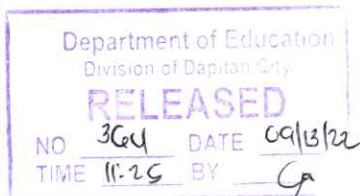 Department of Education
Division of Dapitan City
RELEASED
NO 364 DATE 09/13/22
TIME 11:25 BY